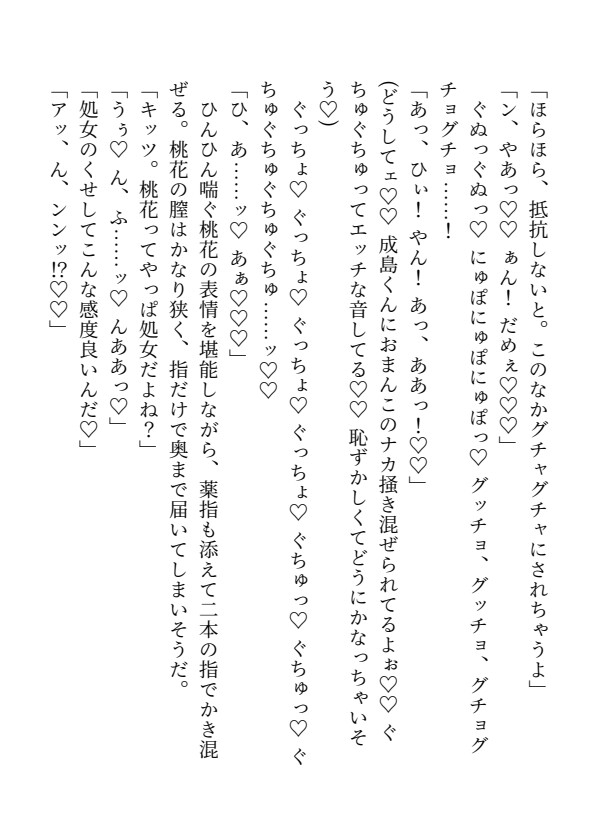 「ほらほら、抵抗しないと。このなかグチャグチャにされちゃうよ」
「ン、やあっ♡♡ ぁん！ だめぇ♡♡♡」
　ぐぬっぐぬっ♡ にゅぽにゅぽにゅぽっ♡ グッチョ、グッチョ、グチョグ
チョグチョ……！
「あっ、ひぃ！ やん！ あっ、ああっ！♡♡」
(どうしてェ♡♡ 成島くんにおまんこのナカ掻き混ぜられてるよぉ♡♡ ぐ
ちゅぐちゅってエッチな音してる♡♡ 恥ずかしくてどうにかなっちゃいそ
う♡)
　ぐっちょ♡ ぐっちょ♡ ぐっちょ♡ ぐっちょ♡ ぐちゅっ♡ ぐちゅっ♡ ぐ
ちゅぐちゅぐちゅぐちゅ……ッ♡♡
「ひ、あ……ッ♡ あぁ♡♡♡」
　ひんひん喘ぐ桃花の表情を堪能しながら、薬指も添えて二本の指でかき混
ぜる。桃花の膣はかなり狭く、指だけで奥まで届いてしまいそうだ。
「キッツ。桃花ってやっぱ処女だよね？」
「うぅ♡ ん、ふ……ッ♡ んああっ♡」
「処女のくせしてこんな感度良いんだ♡」
「アッ、ん、ンンッ⁉♡♡」